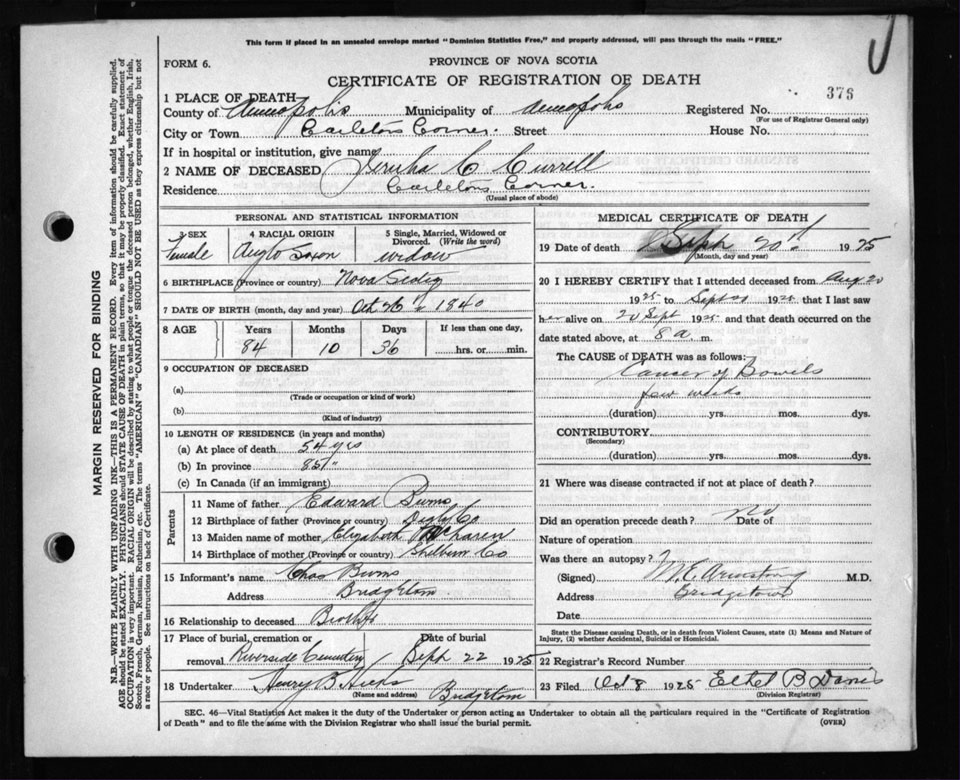 This form if placed in an unsealed envelope marked "Dominion Statistics Free," and properly addressed, will pass through the mails "FREE."
FORM 6.
PROVINCE OF NOVA SCOTIA
CERTIFICATE OF REGISTRATION OF DEATH
376
1 PLACE OF DEATH
County of Annapolis Municipality of Annapolis Registered No.
(For use of Registrar General only)
City or Town Carletons Corner. Street House No.
If in hospital or institution, give name
2 NAME OF DECEASED C Currell
Residence Carletons Corner.
(Usual place of abode)
PERSONAL AND STATISTICAL INFORMATION
3 SEX 4 RACIAL ORIGIN 5 Single, Married, Widowed or Divorced. (Write the word)
Female Anglo Saxon widow
6 BIRTHPLACE (Province or country) Nova Scotia
7 DATE OF BIRTH (month, day and year) Oct 26 1840
8 AGE Years Months Days If less than one day,
84 10 26 ....hrs. or ....min.
9 OCCUPATION OF DECEASED
(a)
(Trade or occupation or kind of work)
(b)
(Kind of industry)
10 LENGTH OF RESIDENCE (in years and months)
(a) At place of death 54 yrs
(b) In province 85 "
(c) In Canada (if an immigrant)
Parents
11 Name of father Edward Burns
12 Birthplace of father (Province or country) Digby Co
13 Maiden name of mother Elizabeth
14 Birthplace of mother (Province or country) Shelburn Co
15 Informant's name Chas Burns
Address Bridgetown
16 Relationship to deceased Brother
17 Place of burial, cremation or removal Date of burial
Riverside Cemetery Sept 22 1925
18 Undertaker Henry B Hicks Bridgetown
(Name and address)
MEDICAL CERTIFICATE OF DEATH
19 Date of death Sept 20 1925
(Month, day and year)
20 I HEREBY CERTIFY that I attended deceased from Aug 20
1925 to Sept 20 1925 that I last saw
her alive on 20 Sept 1925 and that death occurred on the
date stated above, at 8 a. m.
The CAUSE of DEATH was as follows:
Cancer of Bowels
few weeks
(duration) yrs. mos. dys.
CONTRIBUTORY
(Secondary)
(duration) yrs. mos. dys.
21 Where was disease contracted if not at place of death?
Did an operation precede death? No Date of
Nature of operation
Was there an autopsy?
(Signed) M.E. Armstrong M.D.
Address Bridgetown
Date
State the Disease causing Death, or in death from Violent Causes, state (1) Means and Nature of
Injury, (2) whether Accidental, Suicidal or Homicidal.
22 Registrar's Record Number
23 Filed Oct 8 1925 Ethel B Davis
(Division Registrar)
SEC. 46—Vital Statistics Act makes it the duty of the Undertaker or person acting as Undertaker to obtain all the particulars required in the "Certificate of Registration
of Death" and to file the same with the Division Registrar who shall issue the burial permit.
(OVER)
MARGIN RESERVED FOR BINDING
N.B.—WRITE PLAINLY, WITH UNFADING INK—THIS IS A PERMANENT RECORD. Every item of information should be carefully supplied.
AGE should be stated EXACTLY. PHYSICIANS should STATE CAUSE OF DEATH in plain terms, so that it may be properly classified. Exact statement of
OCCUPATION is very important. RACIAL ORIGIN will be described by stating to what people or tongue the deceased person belonged, whether English, Irish,
Scotch, French, German, Russian, Ruthenian, etc. The terms "AMERICAN" or "CANADIAN" SHOULD NOT BE USED as they express citizenship but not
a race or people. See instructions on back of Certificate.